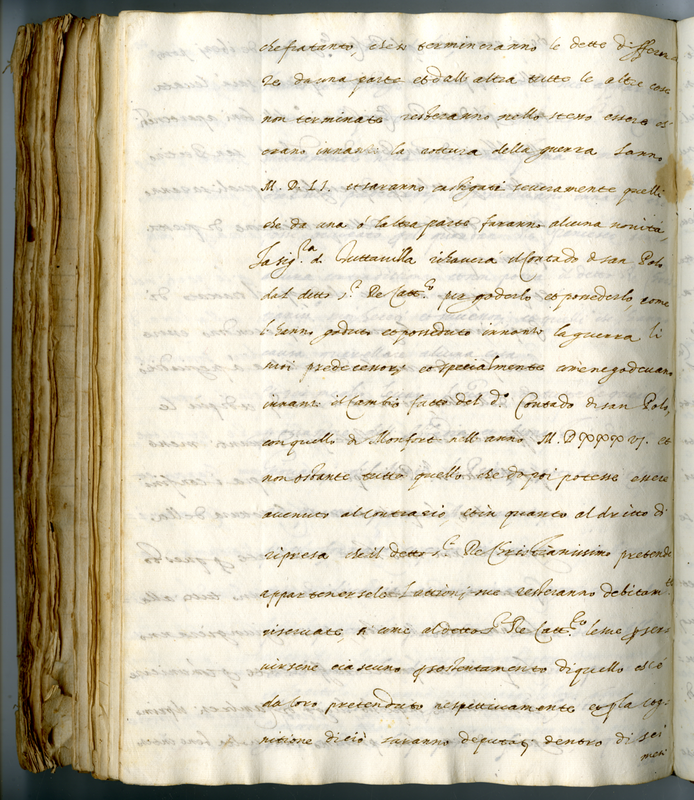 che fratanto, che si termineranno le dette differen
ze da una parte et dall altra tutte le altre cose
non terminate resteranno nello stesso essere ch'
erano innanzi la rottura della guerra lanno
M. D. LI. et saranno castigati seueramente quelli
che da una ó laltra parte faranno alcuna nouità,
La sig.ra d. Tuttauilla rihauerá il Contado di san Polo
dal detto s.r Re Catt.co per goderlo et possederlo, come
l hanno goduto et posseduto innanzi la guerra li
suoi predecessori et spetialmente come ne godeuano
innanzi il Cambio fatto del d.o Contado di san Polo,
con quello di Monfort nell anno M. D XXX VI. et
non ostante tutto quello che dapoi potesse essere
auenuto al contrario, et in quanto al dritto di
ripresa che il detto s.r Re Christianissimo pretende
appartenerseli l attioni sue resteranno debitam.te
riseruate, si come al detto s.r Re Catt.co le sue per ser
uirsene ciascuno per sostentamento di quello ch'è
da loro pretenduto respetiuamente et per la cog
nitione di ció saranno deputati dentro di sei
mesi